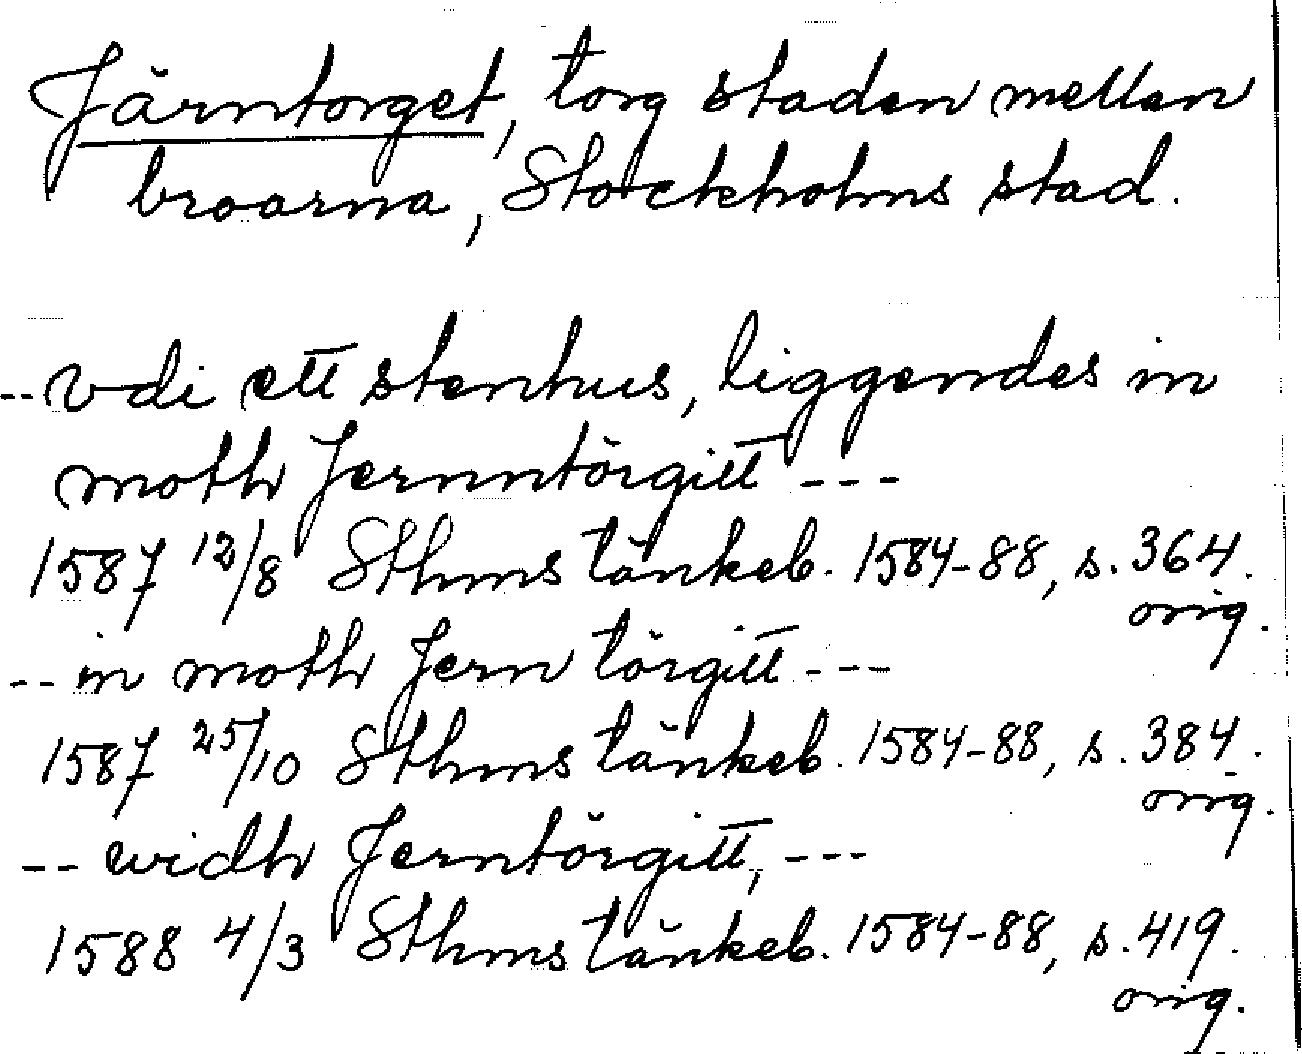 Järntorget, torg staden mellan
broarna, Stockholms stad.
-- vdi ett stenhus, liggendes in
moth Jernntörgitt ---
1587 12/8 Sthms tänkeb. 1584-88, s. 364.
orig.
-- in moth Jern törgitt ---
1587 25/10 Sthms tänkeb. 1584-88, s. 384.
orig.
-- widh Jerntörgitt, ---
1588 4/3 Sthms tänkeb. 1584-88, s. 419.
orig.